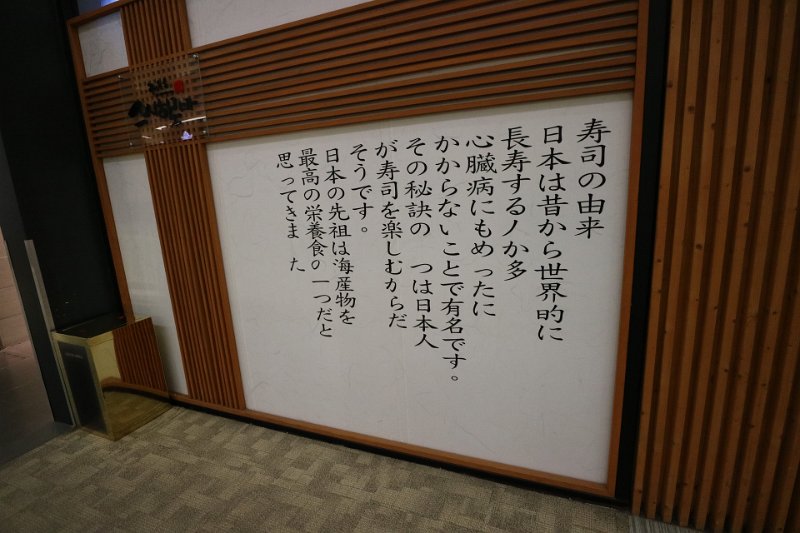 寿司の由来
日本は昔から世界的に
長寿するノか多
心臓病にもめったに
かからないことで有名です。
その秘訣の つは日本人
が寿司を楽しむからだ
そうです。
日本の先祖は海産物を
最高の栄養食の一つだと
思ってきま た